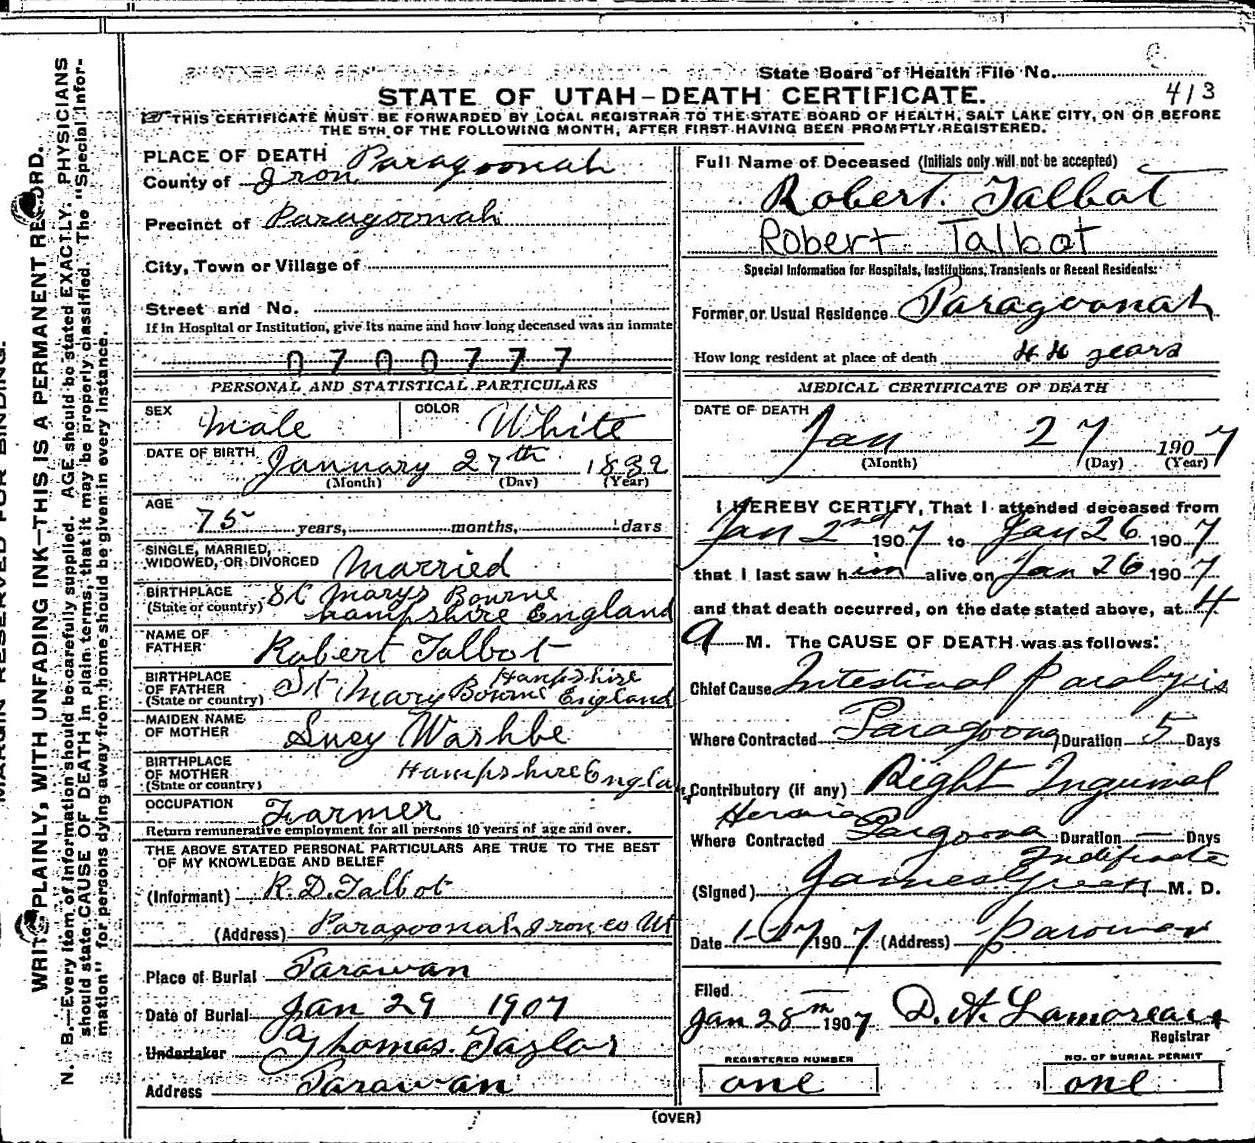 State Board of Health File No.
413
STATE OF UTAH—DEATH CERTIFICATE.
THIS CERTIFICATE MUST BE FORWARDED BY LOCAL REGISTRAR TO THE STATE BOARD OF HEALTH, SALT LAKE CITY, ON OR BEFORE
THE 5TH OF THE FOLLOWING MONTH, AFTER FIRST HAVING BEEN PROMPTLY REGISTERED.
MARGIN RESERVED FOR BINDING.
WRITE PLAINLY, WITH UNFADING INK—THIS IS A PERMANENT RECORD.
N. B.—Every item of information should be carefully supplied. AGE should be stated EXACTLY. PHYSICIANS
should state CAUSE OF DEATH in plain terms, that it may be properly classified. The "Special Infor-
mation" for persons dying away from home should be given in every instance.
PLACE OF DEATH Paragoonah
County of Iron
Precinct of Paragoonah
City, Town or Village of
Street and No.
If in Hospital or Institution, give its name and how long deceased was an inmate
0700777
PERSONAL AND STATISTICAL PARTICULARS
SEX Male COLOR White
DATE OF BIRTH January 27th 1832
(Month) (Day) (Year)
AGE 75 years, months, days
SINGLE, MARRIED,
WIDOWED, OR DIVORCED Married
BIRTHPLACE St Marys Bourne
(State or country) hampshire England
NAME OF
FATHER Robert Talbot
BIRTHPLACE Hampshire
OF FATHER St Mary Bourne England
(State or country)
MAIDEN NAME
OF MOTHER Lucy Washbe
BIRTHPLACE
OF MOTHER Hampshire Engla
(State or country)
OCCUPATION Farmer
Return remunerative employment for all persons 10 years of age and over.
THE ABOVE STATED PERSONAL PARTICULARS ARE TRUE TO THE BEST
OF MY KNOWLEDGE AND BELIEF
(Informant) R. D. Talbot
(Address) Paragoonah Iron co Ut
Place of Burial Parawan
Date of Burial Jan 29 1907
Undertaker Thomas. Taylor
Address Parawan
Full Name of Deceased (Initials only will not be accepted)
Robert. Talbot
Robert Talbot
Special Information for Hospitals, Institutions, Transients or Recent Residents:
Former or Usual Residence Paragoonah
How long resident at place of death 44 years
MEDICAL CERTIFICATE OF DEATH
DATE OF DEATH
Jan 27 1907
(Month) (Day) (Year)
I HEREBY CERTIFY, That I attended deceased from
Jan 2nd 1907 to Jan 26 1907
that I last saw him alive on Jan 26 1907
and that death occurred, on the date stated above, at 4
a M. The CAUSE OF DEATH was as follows:
Chief Cause Intestinal Paralysis
Where Contracted Paragoona Duration 5 Days
Contributory (if any) Right Inguinal
Hernia
Where Contracted Pargoona Duration — Days
Indefinate
(Signed) James Green M. D.
Date 1-27 1907 (Address) Parowan
Filed
Jan 28th 1907 D. A. Lamoreaux
Registrar
REGISTERED NUMBER
one
NO. OF BURIAL PERMIT
one
(OVER)